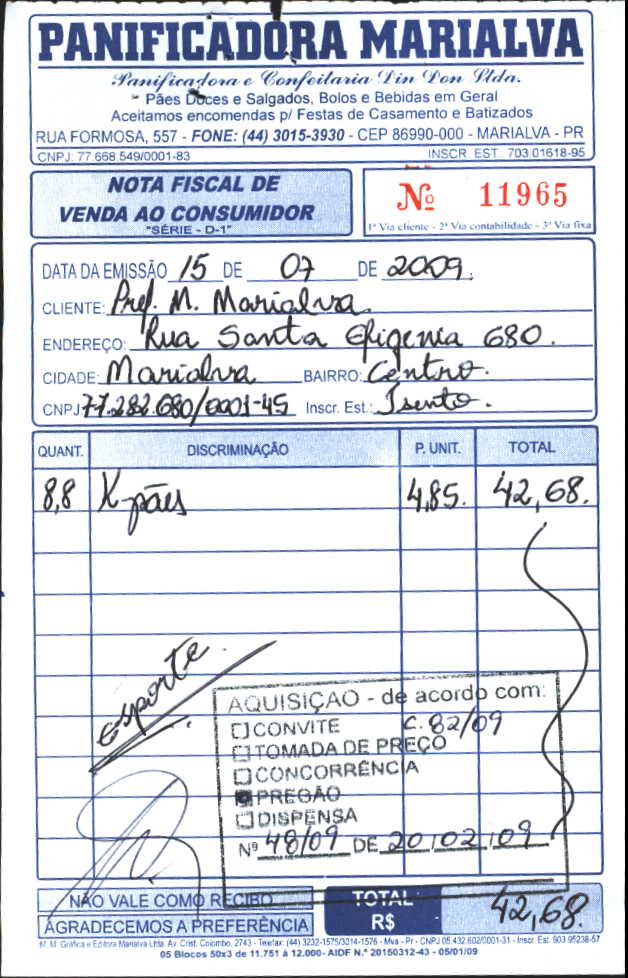 PANIFICADORA MARIALVA
Panificadora e Confeitaria Din Don Ltda.
Pães Doces e Salgados, Bolos e Bebidas em Geral
Aceitamos encomendas p/ Festas de Casamento e Batizados
RUA FORMOSA, 557 - FONE: (44) 3015-3930 - CEP 86990-000 - MARIALVA - PR
CNPJ: 77.668.549/0001-83 INSCR. EST. 703.01618-95
NOTA FISCAL DE
VENDA AO CONSUMIDOR
"SÉRIE - D-1"
Nº 11965
1ª Via cliente - 2ª Via contabilidade - 3ª Via fixa
DATA DA EMISSÃO 15 DE 07 DE 2009.
CLIENTE: Pref. M. Marialva.
ENDEREÇO: Rua Santa Efigenia 680.
CIDADE: Marialva BAIRRO: Centro.
CNPJ: 77.282.680/0001-45 Inscr. Est.: Isento.
QUANT. DISCRIMINAÇÃO P. UNIT. TOTAL
8,8 K pães 4,85. 42,68.
esporte
AQUISIÇÃO - de acordo com:
CONVITE C. 82/09
TOMADA DE PREÇO
CONCORRÊNCIA
PREGÃO
DISPENSA
Nº 48/09 DE 20/02/09
NÃO VALE COMO RECIBO
AGRADECEMOS A PREFERÊNCIA
TOTAL R$ 42,68.
M. M. Gráfica e Editora Marialva Ltda. Av. Crist. Colombo, 2743 - Telefax: (44) 3232-1575/3014-1576 - Mva - Pr - CNPJ 05.432.602/0001-31 - Inscr. Est. 903.95238-57
05 Blocos 50x3 de 11.751 à 12.000- AIDF N.º 20150312-43 - 05/01/09